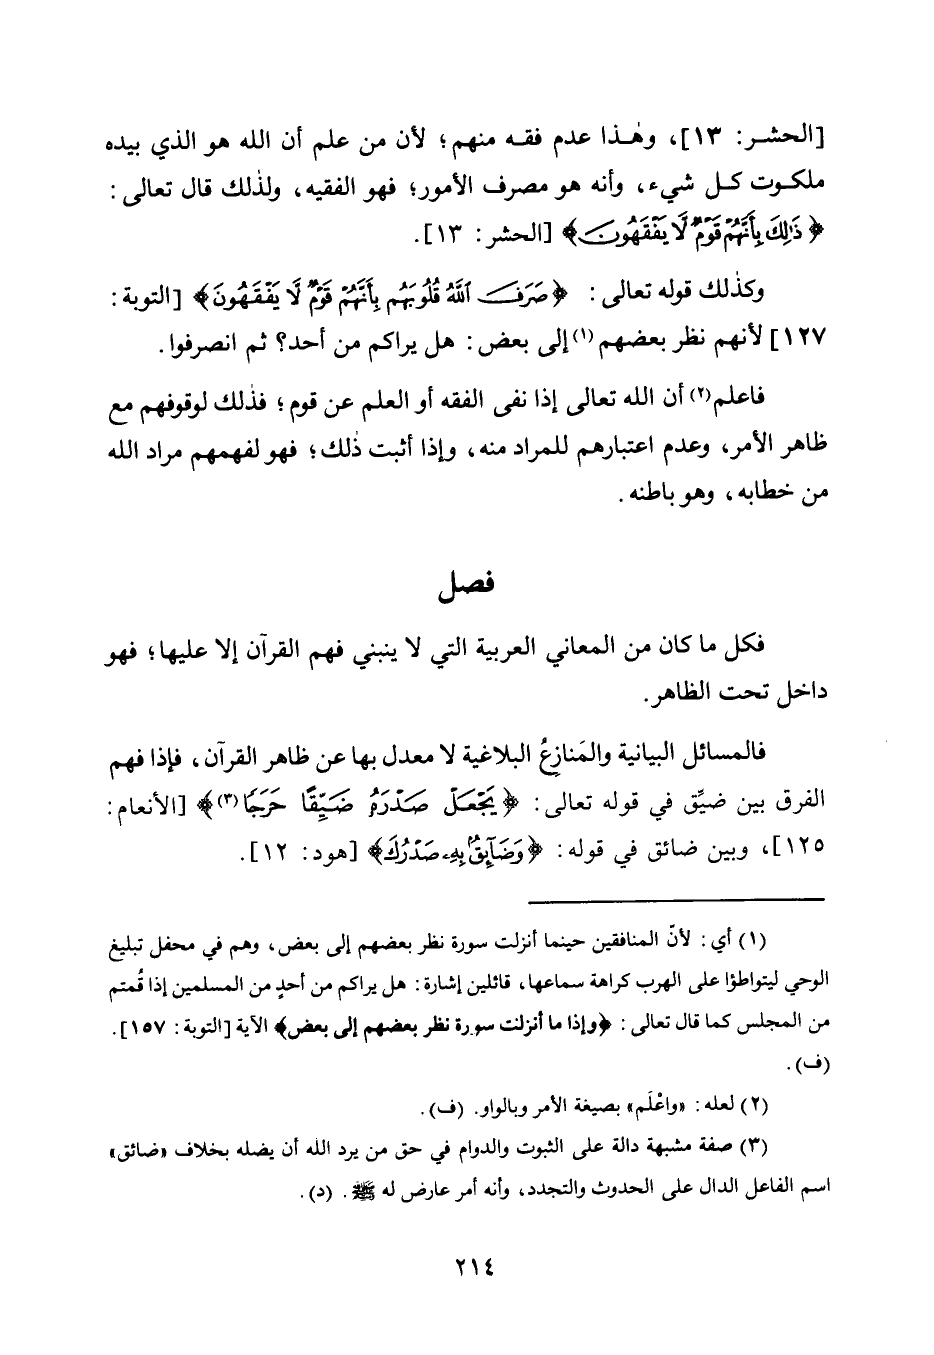 [الحشـر: ١٣]، وهٰـذا عدم فقـه منهم؛ لأن من علم أن الله هو الذي بيده
ملكـوت كـل شيء، وأنه هو مصرف الأمور؛ فهو الفقيه، ولذٰلك قال تعالى:
﴿ذَٰلِكَ بِأَنَّهُمْ قَوْمٌ لَّا يَفْقَهُونَ﴾ [الحشر: ١٣].
وكذٰلك قوله تعالى: ﴿صَرَفَ ٱللَّهُ قُلُوبَهُم بِأَنَّهُمْ قَوْمٌ لَّا يَفْقَهُونَ﴾ [التوبة:
١٢٧] لأنهم نظر بعضهم (١) إلى بعض: هل يراكم من أحد؟ ثم انصرفوا.
فاعلم (٢) أن الله تعالى إذا نفى الفقه أو العلم عن قوم؛ فذٰلك لوقوفهم مع
ظاهر الأمر، وعدم اعتبارهم للمراد منه، وإذا أثبت ذٰلك؛ فهو لفهمهم مراد الله
من خطابه، وهو باطنه.
فصل
فكل ما كان من المعاني العربية التي لا ينبني فهم القرآن إلا عليها؛ فهو
داخل تحت الظاهر.
فالمسائل البيانية والمَنازعُ البلاغية لا معدل بها عن ظاهر القرآن، فإذا فهم
الفرق بين ضيِّق في قوله تعالى: ﴿يَجْعَلْ صَدْرَهُ ضَيِّقًا حَرَجًا (٣)﴾ [الأنعام:
١٢٥]، وبين ضائق في قوله: ﴿وَضَآئِقٌۢ بِهِۦ صَدْرُكَ﴾ [هود: ١٢].
(١) أي: لأنّ المنافقين حينما أنزلت سورة نظر بعضهم إلى بعض، وهم في محفل تبليغ
الوحي ليتواطؤا على الهرب كراهة سماعها، قائلين إشارة: هل يراكم من أحدٍ من المسلمين إذا قُمتم
من المجلس كما قال تعالى: ﴿وإذا ما أنزلت سورة نظر بعضهم إلى بعض﴾ الآية [التوبة: ١٥٧].
(ف).
(٢) لعله: «واعْلَم» بصيغة الأمر وبالواو. (ف).
(٣) صفة مشبهة دالة على الثبوت والدوام في حق من يرد الله أن يضله بخلاف «ضائق»
اسم الفاعل الدال على الحدوث والتجدد، وأنه أمر عارض له ﷺ. (د).
٢١٤